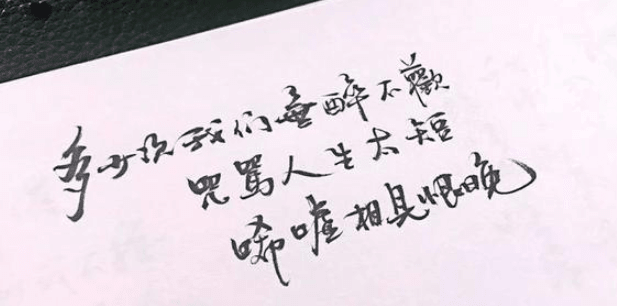 多少次我们无醉不歡
咒罵人生太短
唏嘘相見恨晚